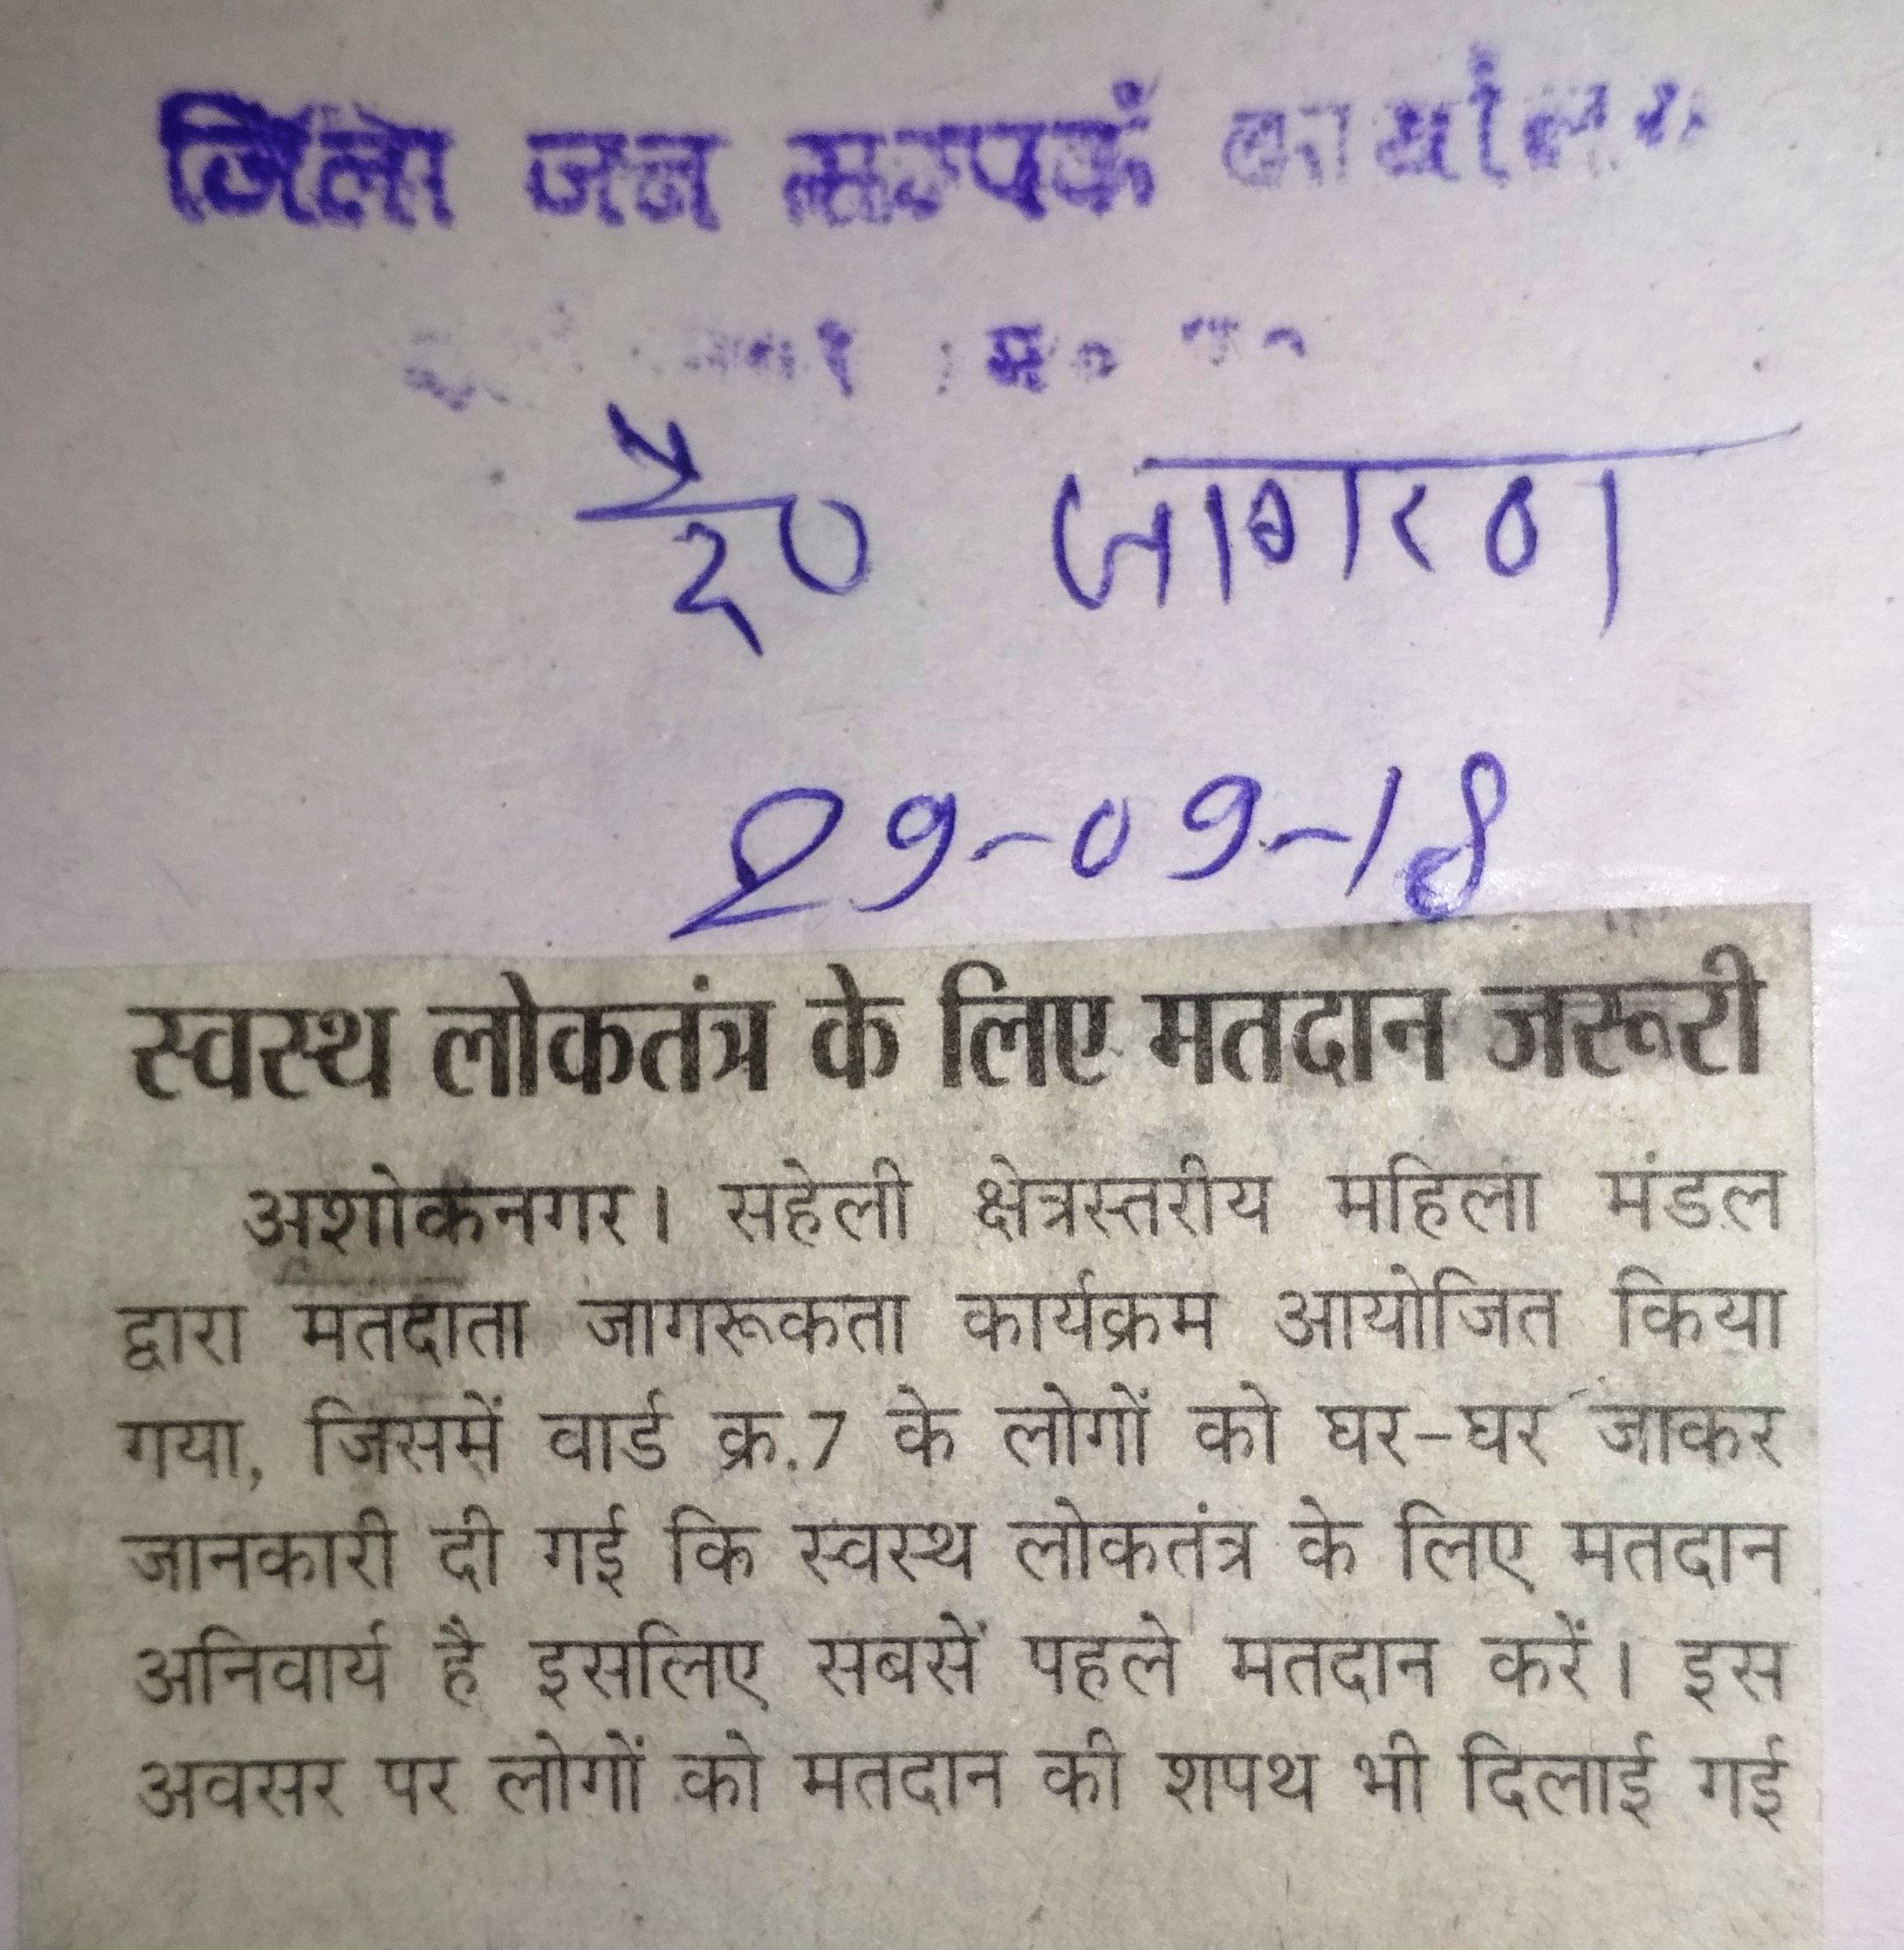 जिला जन सम्पर्क कार्यालय
दै० जागरण
29-09-18
स्वस्थ लोकतंत्र के लिए मतदान जरूरी
अशोकनगर। सहेली क्षेत्रस्तरीय महिला मंडल
द्वारा मतदाता जागरूकता कार्यक्रम आयोजित किया
गया, जिसमें वार्ड क्र.7 के लोगों को घर-घर जाकर
जानकारी दी गई कि स्वस्थ लोकतंत्र के लिए मतदान
अनिवार्य है इसलिए सबसें पहले मतदान करें। इस
अवसर पर लोगों को मतदान की शपथ भी दिलाई गई